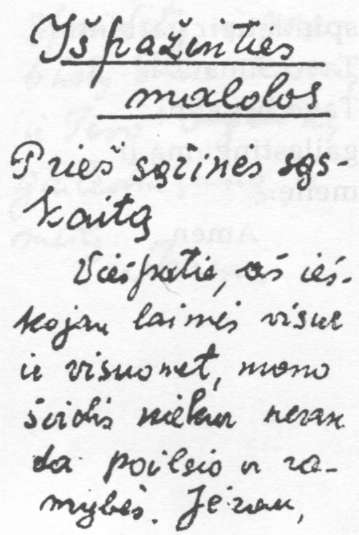 Išpažinties
maldos
Prieš sąžinės sąs-
kaitą
Viešpatie, aš ieš-
kojau laimės visur
ir visuomet, mano
širdis niekur neran
da poilsio ir ra-
mybės. Jėzau,